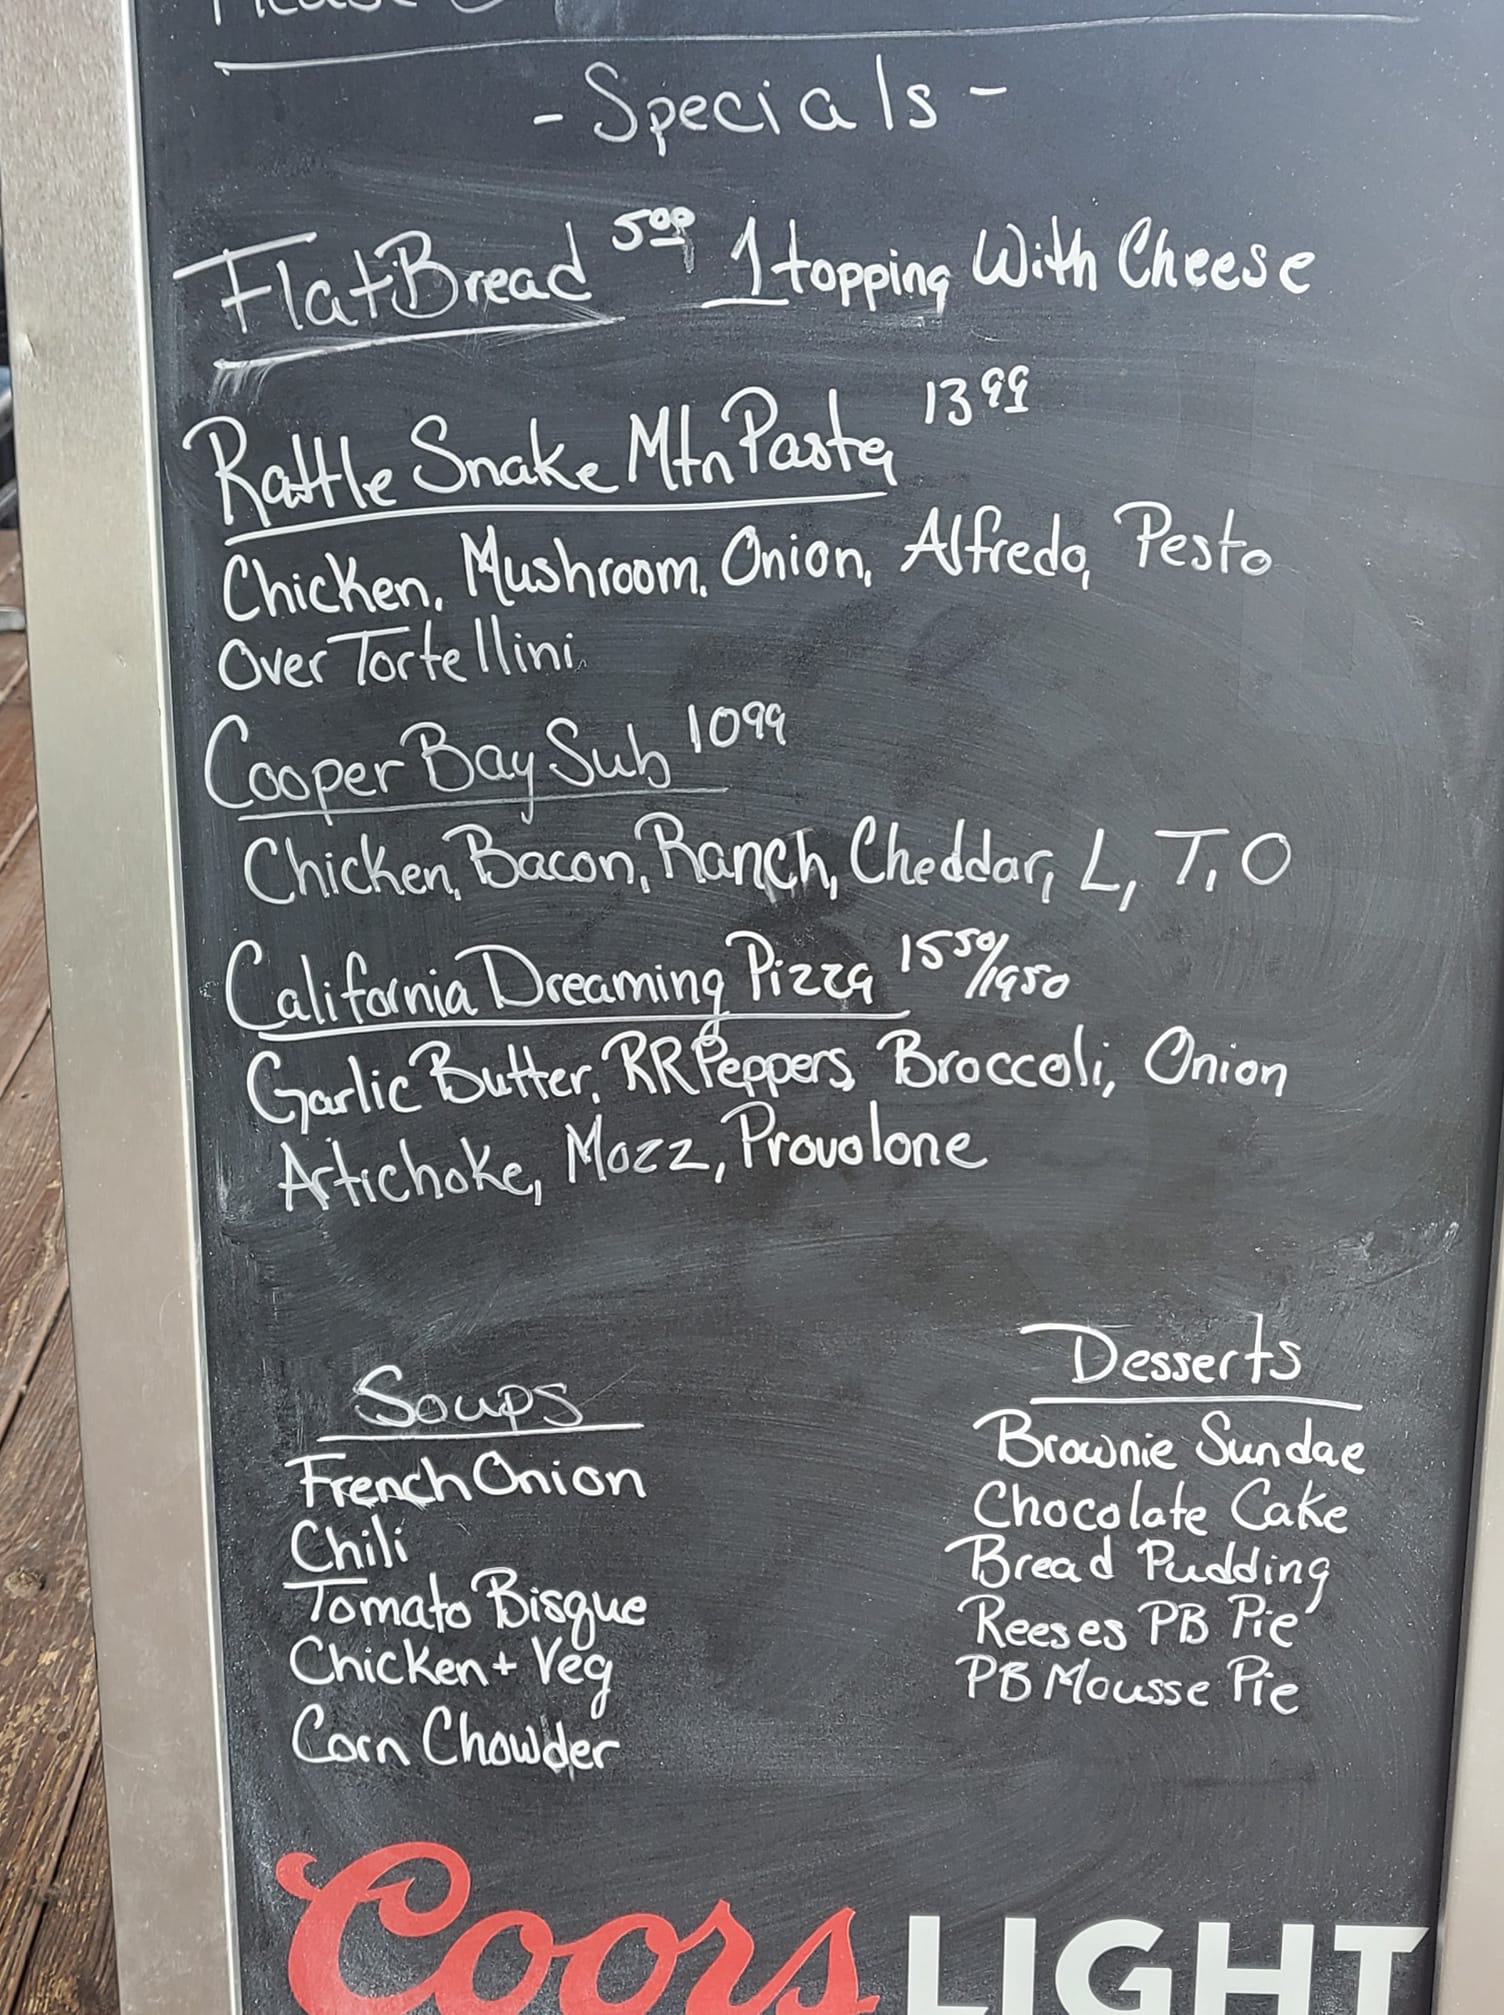 - Specials -
FlatBread 5.00 1 topping With Cheese
Rattle Snake Mtn Pasta 13 99
Chicken, Mushroom, Onion, Alfredo, Pesto
Over Tortellini
Cooper Bay Sub 10 99
Chicken, Bacon, Ranch, Cheddar, L, T, O
California Dreaming Pizza 15 50/19 50
Garlic Butter, RR Peppers, Broccoli, Onion
Artichoke, Mozz, Provolone
Soups
French Onion
Chili
Tomato Bisque
Chicken + Veg
Corn Chowder
Desserts
Brownie Sundae
Chocolate Cake
Bread Pudding
Reeses PB Pie
PB Mousse Pie
Coors LIGHT